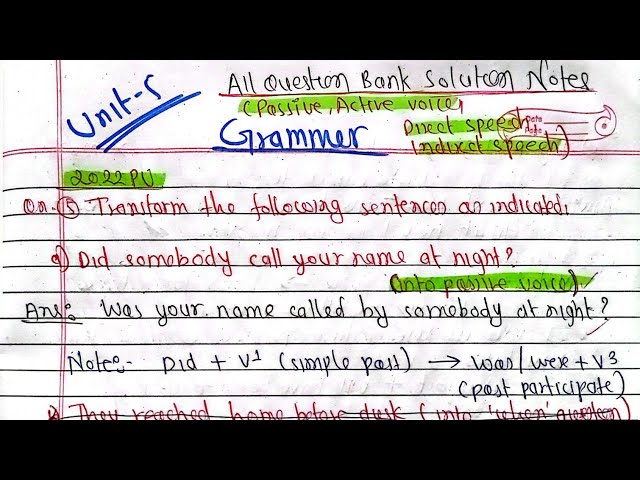 Unit-5
All Question Bank Solution Notes
(Passive, Active voice,
Direct speech
Indirect speech)
Date
Page
Grammer
2022 PU
Q.n. (5) Transform the following sentences as indicated.
a) Did somebody call your name at night?
(into passive voice)
Ans: Was your name called by somebody at night?
Note:- Did + V1 (simple past) → was/were + V3
(past participate)
They reached home before dusk (into 'when' question)